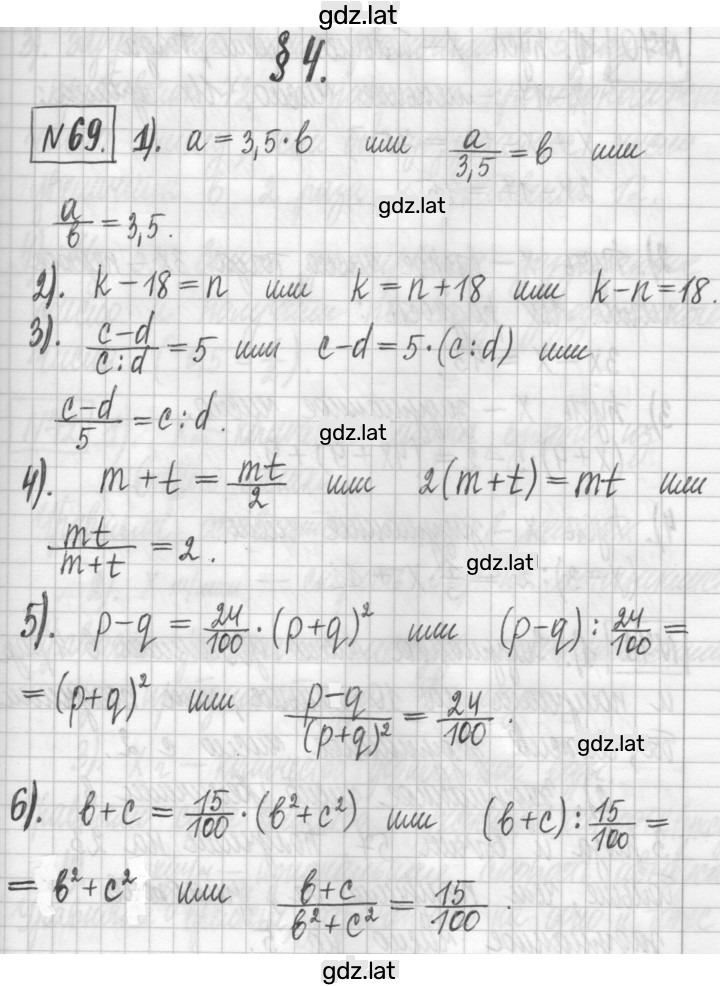 gdz.lat
§ 4.
№ 69. 1). a = 3,5 · в или a/3,5 = в или
gdz.lat
a/в = 3,5.
2). k − 18 = n или k = n + 18 или k − n = 18.
3). (c−d)/(c:d) = 5 или c−d = 5·(c:d) или
(c−d)/5 = c:d.
gdz.lat
4). m + t = mt/2 или 2(m+t) = mt или
mt/(m+t) = 2.
gdz.lat
5). p−q = 24/100 · (p+q)² или (p−q) : 24/100 =
= (p+q)² или (p−q)/(p+q)² = 24/100.
gdz.lat
6). в+c = 15/100 · (в²+c²) или (в+c) : 15/100 =
= в²+c² или (в+c)/(в²+c²) = 15/100.
gdz.lat